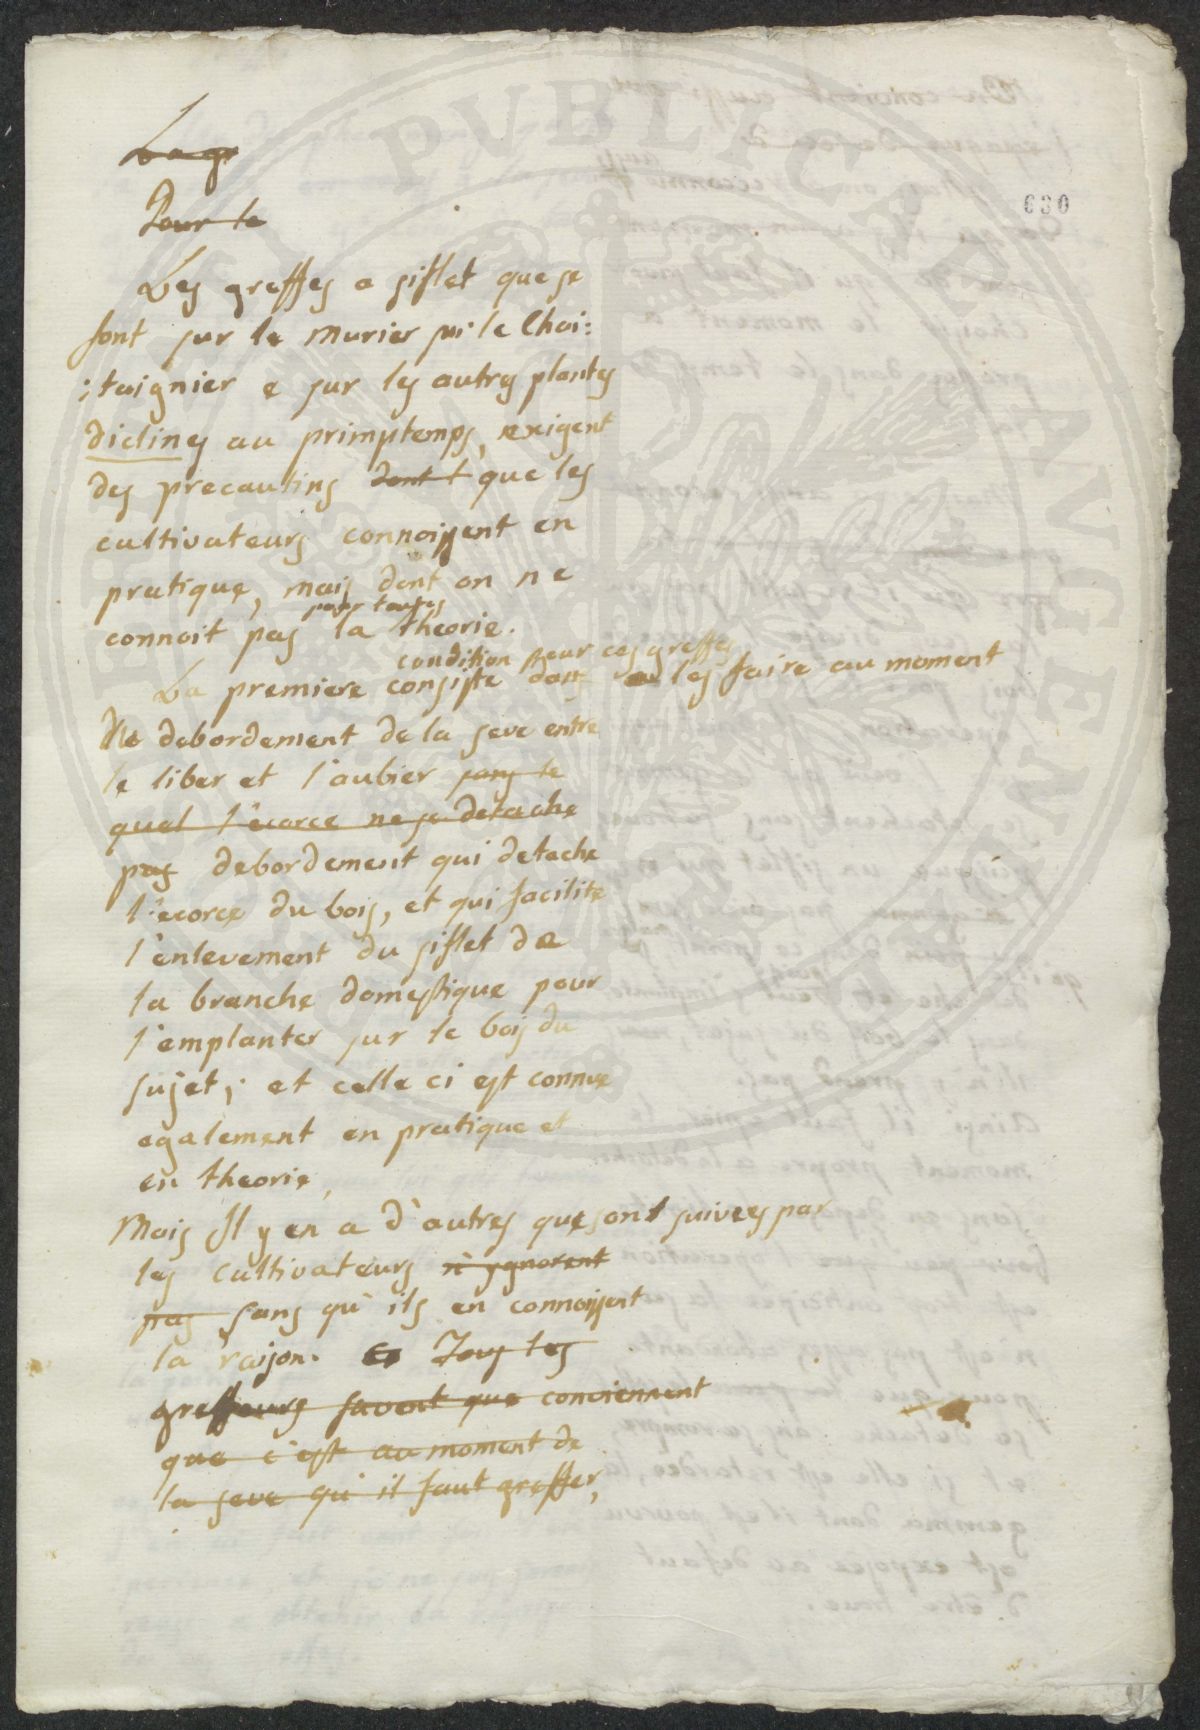 La gr
630
Pour le
Les greffes a siflet que se
font sur le murier sur le Chai:
:taignier e sur les autres plantes
diclines au primptemps, exigent
des precautins dont que les
cultivateurs connoissent en
pratique, mais dont on ne
connoit pas pour toutes la theorie.
La premiere condition pour ces greffes consiste dans les faire au moment
de debordement de la seve entre
le liber et l'aubier sans le
quel l'ecorce ne se detache
pas debordement qui detache
l'ecorce du bois, et qui facilite
l'enlevement du siflet de
la branche domestique pour
l'emplanter sur le bois du
sujet; et celle ci est connue
egalement en pratique et
en theorie,
Mais Il y en a d'autres que sont suivees par
les cultivateurs n'ygnorent
pas sans qu'ils en connoissent
la raison. Tous les
greffeurs savent que conviennent
que c'est au moment de
la seve qu'il faut greffer,